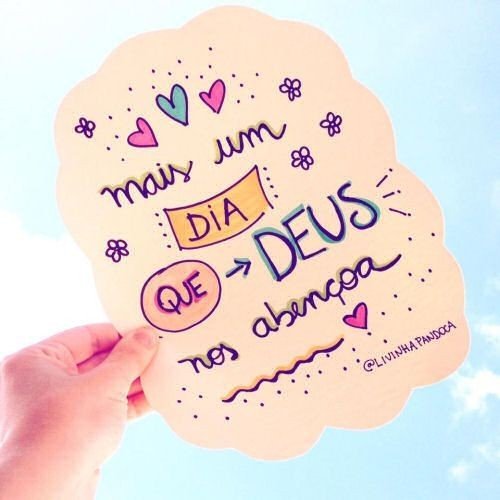 mais um
DIA
QUE → DEUS
nos abençoa
@LIVINHAPANDOCA